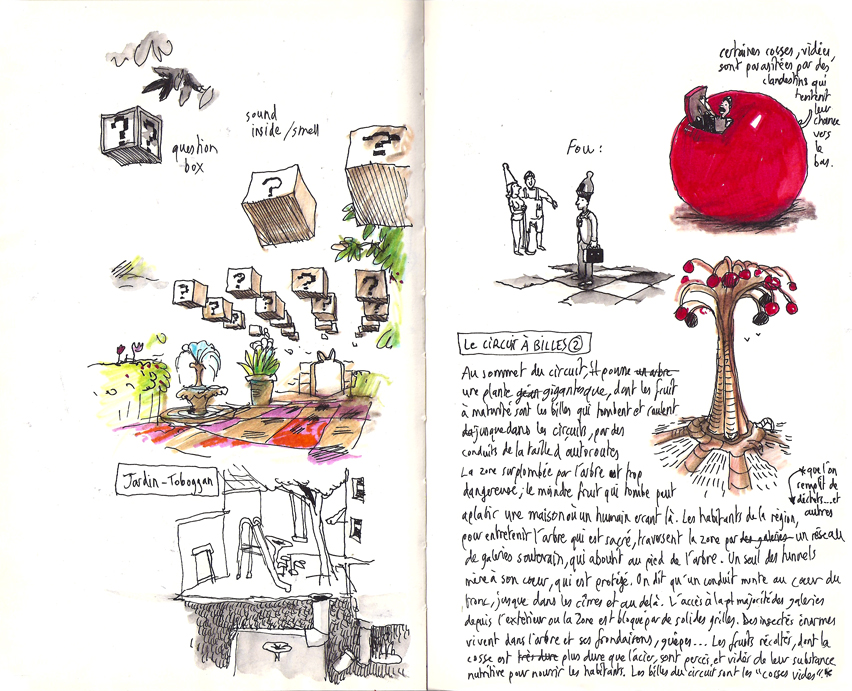 sound
inside/smell
question
box
?
?
?
?
?
?
?
?
?
?
Jardin-Toboggan
certaines cosses, vidées,
sont parasitées par des
clandestins qui
tentent
leur
chance
vers
le
bas.
Fou :
LE CIRCUIT À BILLES ②
Au sommet du circuit, pousse un arbre
une plante géan gigantesque, dont les fruit
à maturité sont les billes qui tombent et roulent
jusque dans les circuits, par des
conduits de la taille d'autoroutes
La zone surplombée par l'arbre est trop
dangereuse ; le moindre fruit qui tombe peut
aplatir une maison où un humain errant là. Les habitants de la région,
pour entretenir l'arbre qui est sacré, traversent la zone par des galeries un réseau
de galeries souterain, qui aboutit au pied de l'arbre. Un seul des tunnels
mène à son cœur, qui est protégé. On dit qu'un conduit monte au cœur du
tronc, jusque dans les cîmes et au delà. L'accès à la pt majorité des galeries
depuis l'extérieur ou la Zone est bloqué par de solides grilles. Des insectes énormes
vivent dans l'arbre et ses frondaisons, guêpes... Les fruits récoltés, dont la
cosse est très dure plus dure que l'acier, sont percés, et vidés de leur substance
nutritive pour nourrir les habitants. Les billes du circuit sont les "cosses vides".*
*que l'on
remplit de
déchets...et
autres